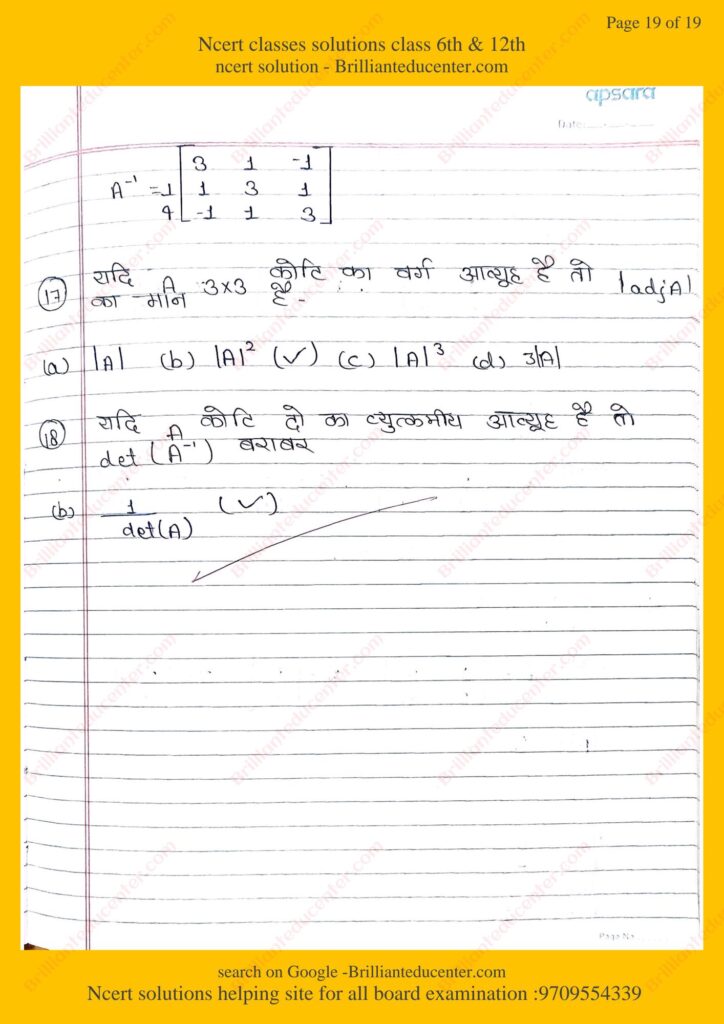 Page 19 of 19
Ncert classes solutions class 6th & 12th
ncert solution - Brillianteducenter.com
apsara
Date:
3 1 -1
A⁻¹ = 1 1 3 1
4 -1 1 3
(17) यदि A 3×3 कोटि का वर्ग आव्यूह है तो |adjA|
का मान है -
(a) |A| (b) |A|² (✓) (c) |A|³ (d) 3|A|
(18) यदि A कोटि दो का व्युत्क्रमीय आव्यूह है तो
det (A⁻¹) बराबर
(b) 1 (✓)
det(A)
Page No
search on Google -Brillianteducenter.com
Ncert solutions helping site for all board examination :9709554339